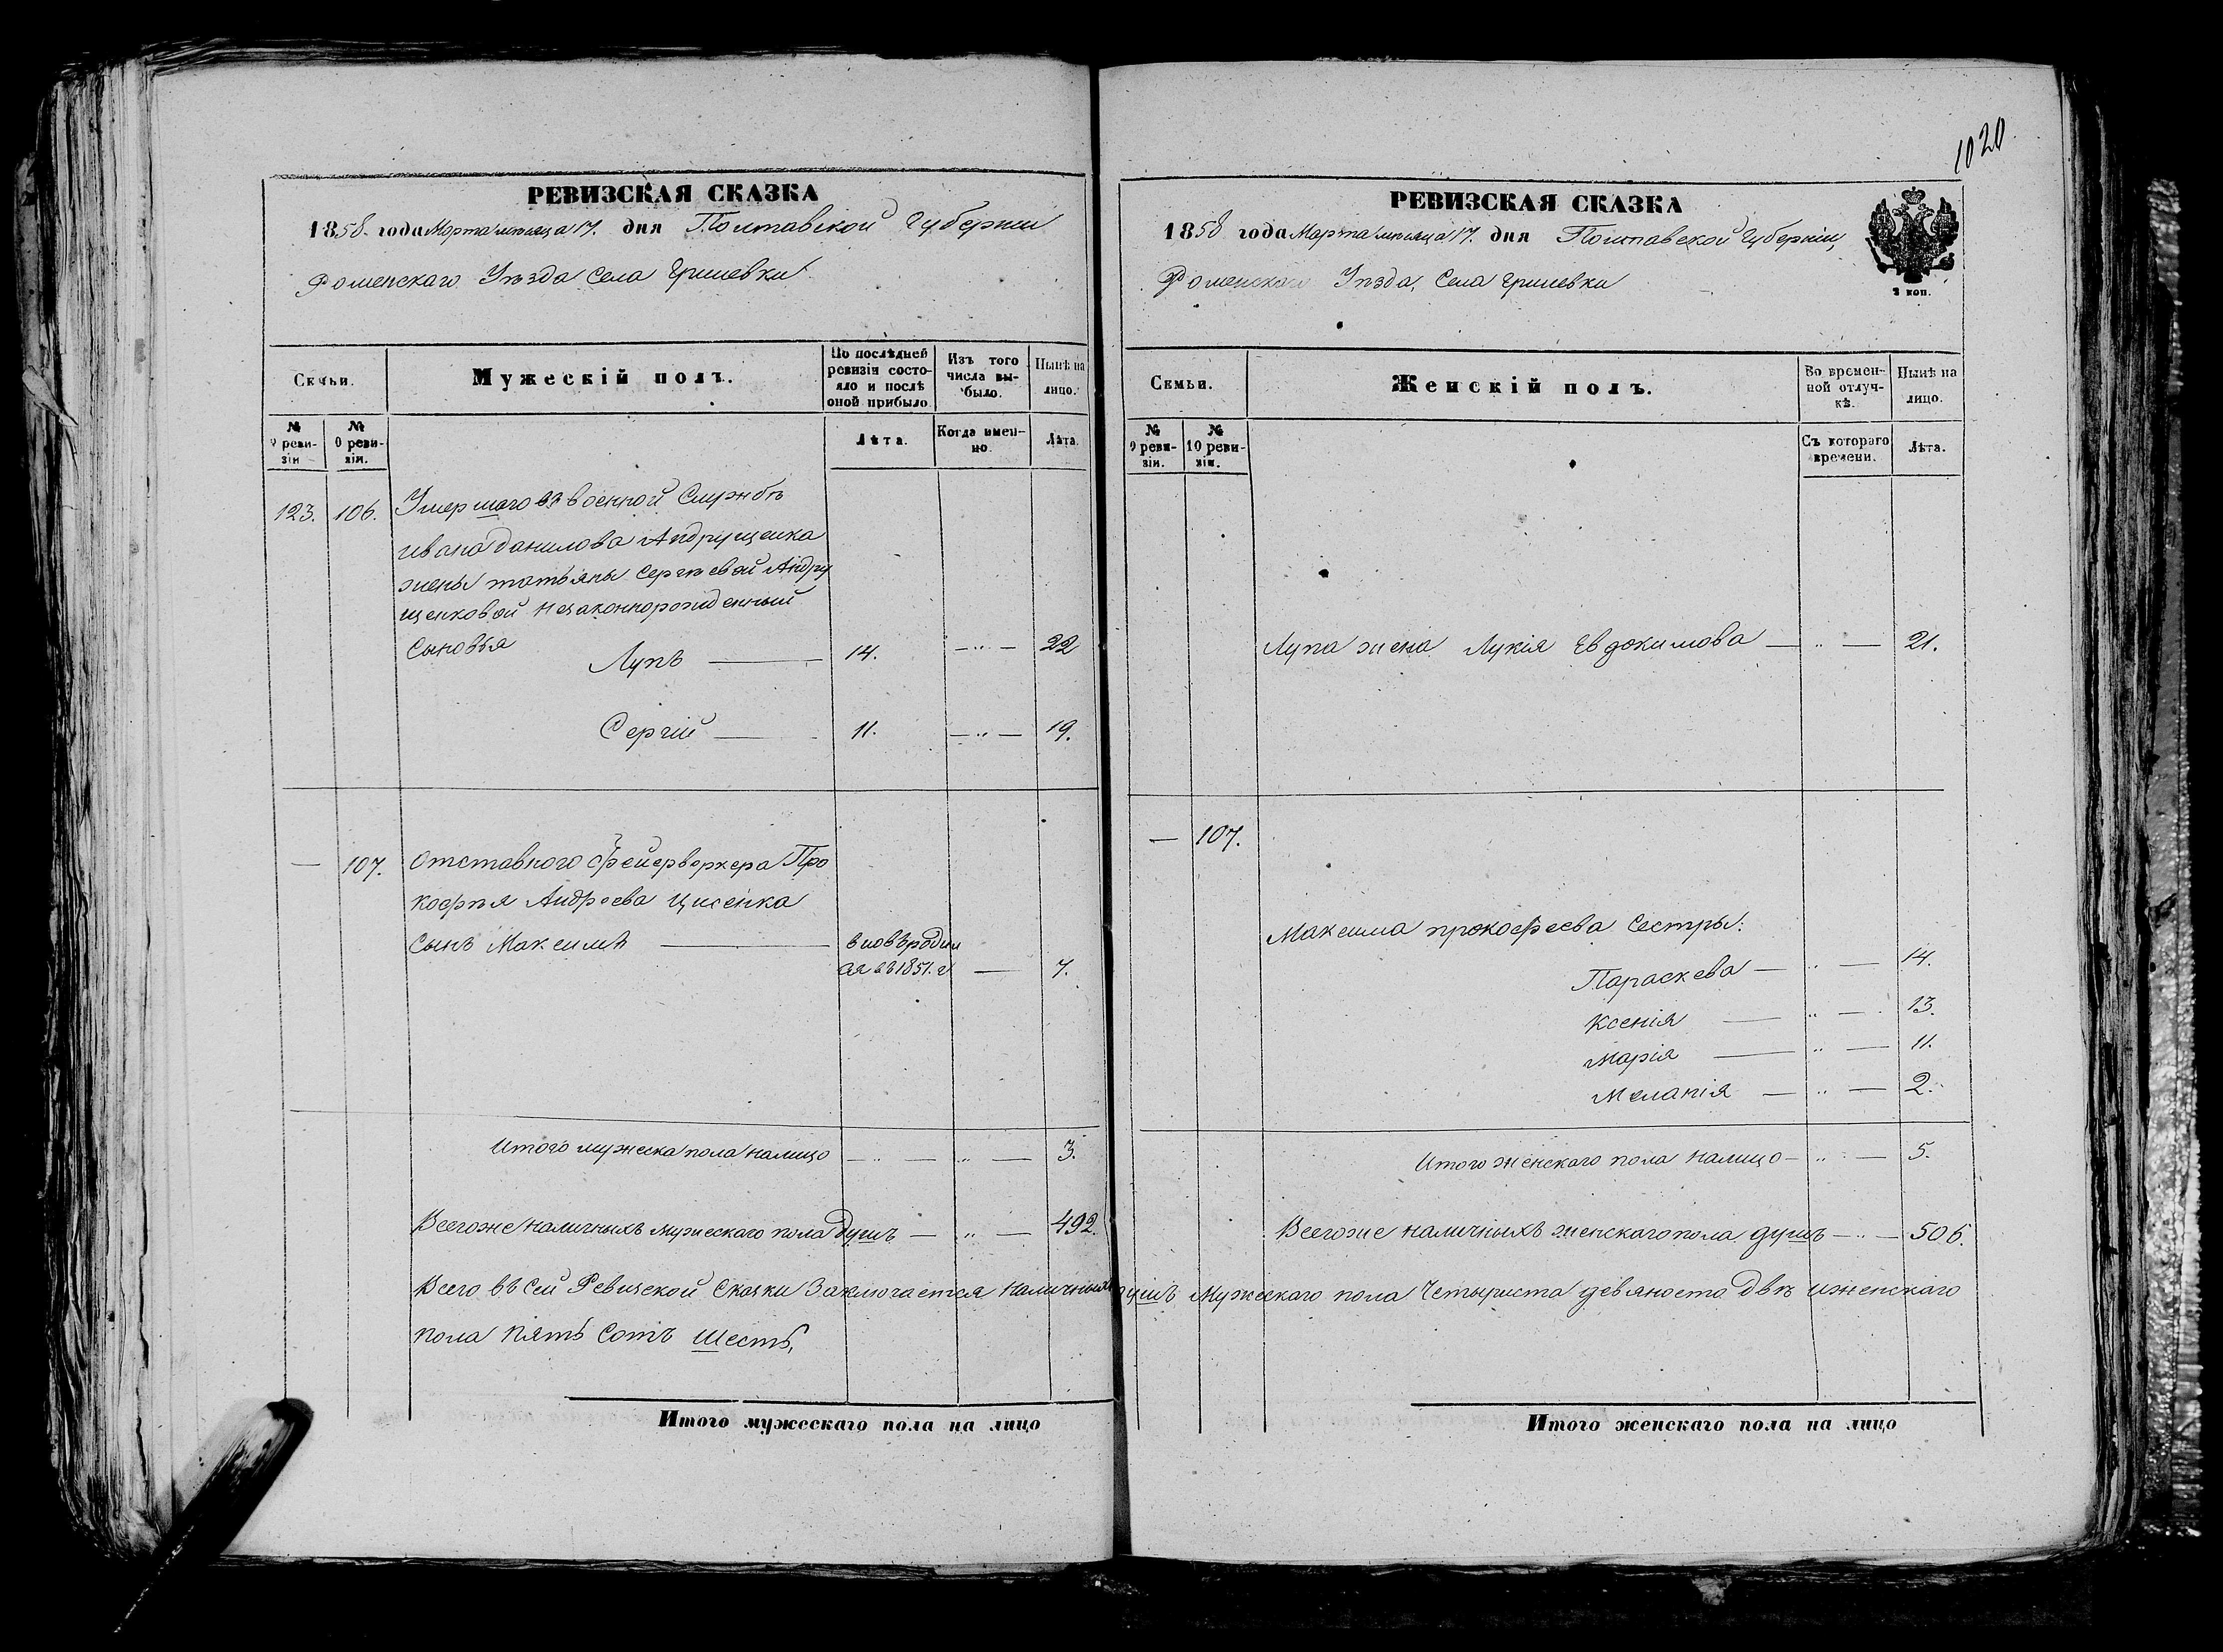 РЕВИЗСКАЯ СКАЗКА
1858 года Марта месяца 17. дня Полтавской Губернии
Роменскаго Уѣзда Села Гришевки
Семьи.
Мужескій полъ.
По послѣдней ревизіи состо-
яло и послѣ
оной прибыло.
Изъ того
числа вы-
было.
Нынѣ на
лицо.
№
9 реви-
зіи
№
0 реви-
зіи.
Лѣта.
Когда имен-
но.
Лѣта.
123. 106. Умершаго въ военной Службѣ
ивана данилова Андрущенка
жены татьяны Сергѣевой Андру
щенковой незаконнорожденныи
Сыновья
Лупъ — 14. —"— 22
Сергій — 11. —"— 19.
— 107. Отставного Фейерверкера Про
кофѣя Андреева Цисенка
Сынъ Максимъ — вновь родил
ся въ 1851. г. — 7.
Итого мужеска пола налицо —"— "— 3.
Всегоже наличныхъ мужескаго пола душъ — "— 492.
Всего въ Сей Ревизской Сказки Заключается наличныхъ душъ Мужескаго пола Четыриста девяносто двѣ и женскаго
пола пять Сотъ Шесть,
Итого мужескаго пола на лицо
1020
РЕВИЗСКАЯ СКАЗКА
1858 года Марта месяца 17. дня Полтавской Губерніи
Роменскаго Уѣзда, Села Гришевки
2 коп.
Семьи.
Женскій полъ.
Во времен-
ной отлуч-
кѣ.
Нынѣ на
лицо.
№
9 реви-
зіи.
№
10 реви-
зіи.
Съ котораго
времени.
Лѣта.
Лупа жена Лукія Евдокимова —"— 21.
— 107.
Максима прокофеева Сестры:
Параскева —"— 14.
Ксенія —"— 13.
Марія —"— 11.
Меланія —"— 2.
Итого женскаго пола налицо —"— 5.
Всегоже наличныхъ женскаго пола душъ —"— 506.
Итого женскаго пола на лицо